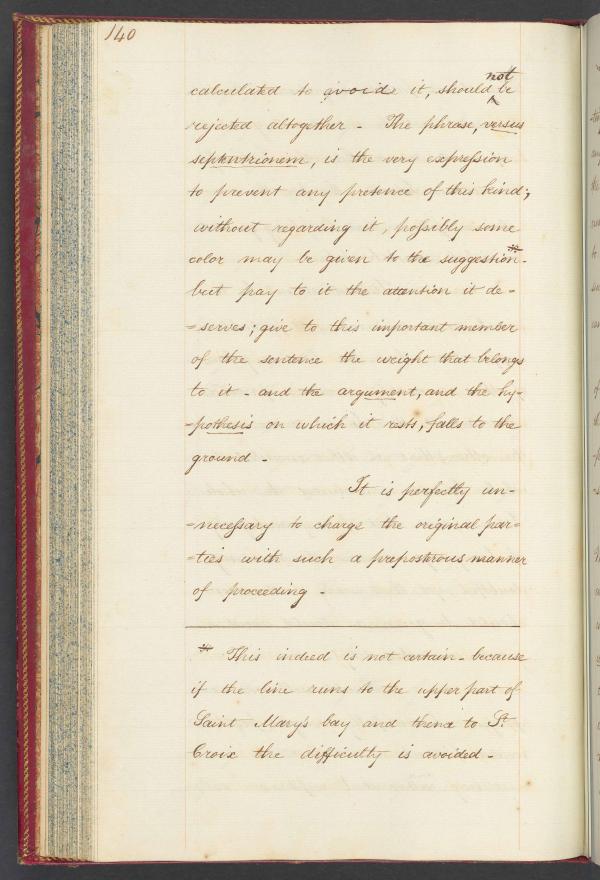 140
calculated to avoid it, should not be
rejected altogether - The phrase, versus
septentrionem, is the very expression
to prevent any pretence of this kind;
without regarding it, possibly some
color may be given to the suggestion * -
but pay to it the attention it de-
=serves; give to this important member
of the sentence the weight that belongs
to it - and the argument, and the hy-
-pothesis on which it rests, falls to the
ground -
It is perfectly un-
=necessary to charge the original par=
=ties with such a prepostrous manner
of proceeding -
* This indeed is not certain - because
if the line runs to the upper part of
Saint Mary's bay and thence to St.
Croix the difficulty is avoided -